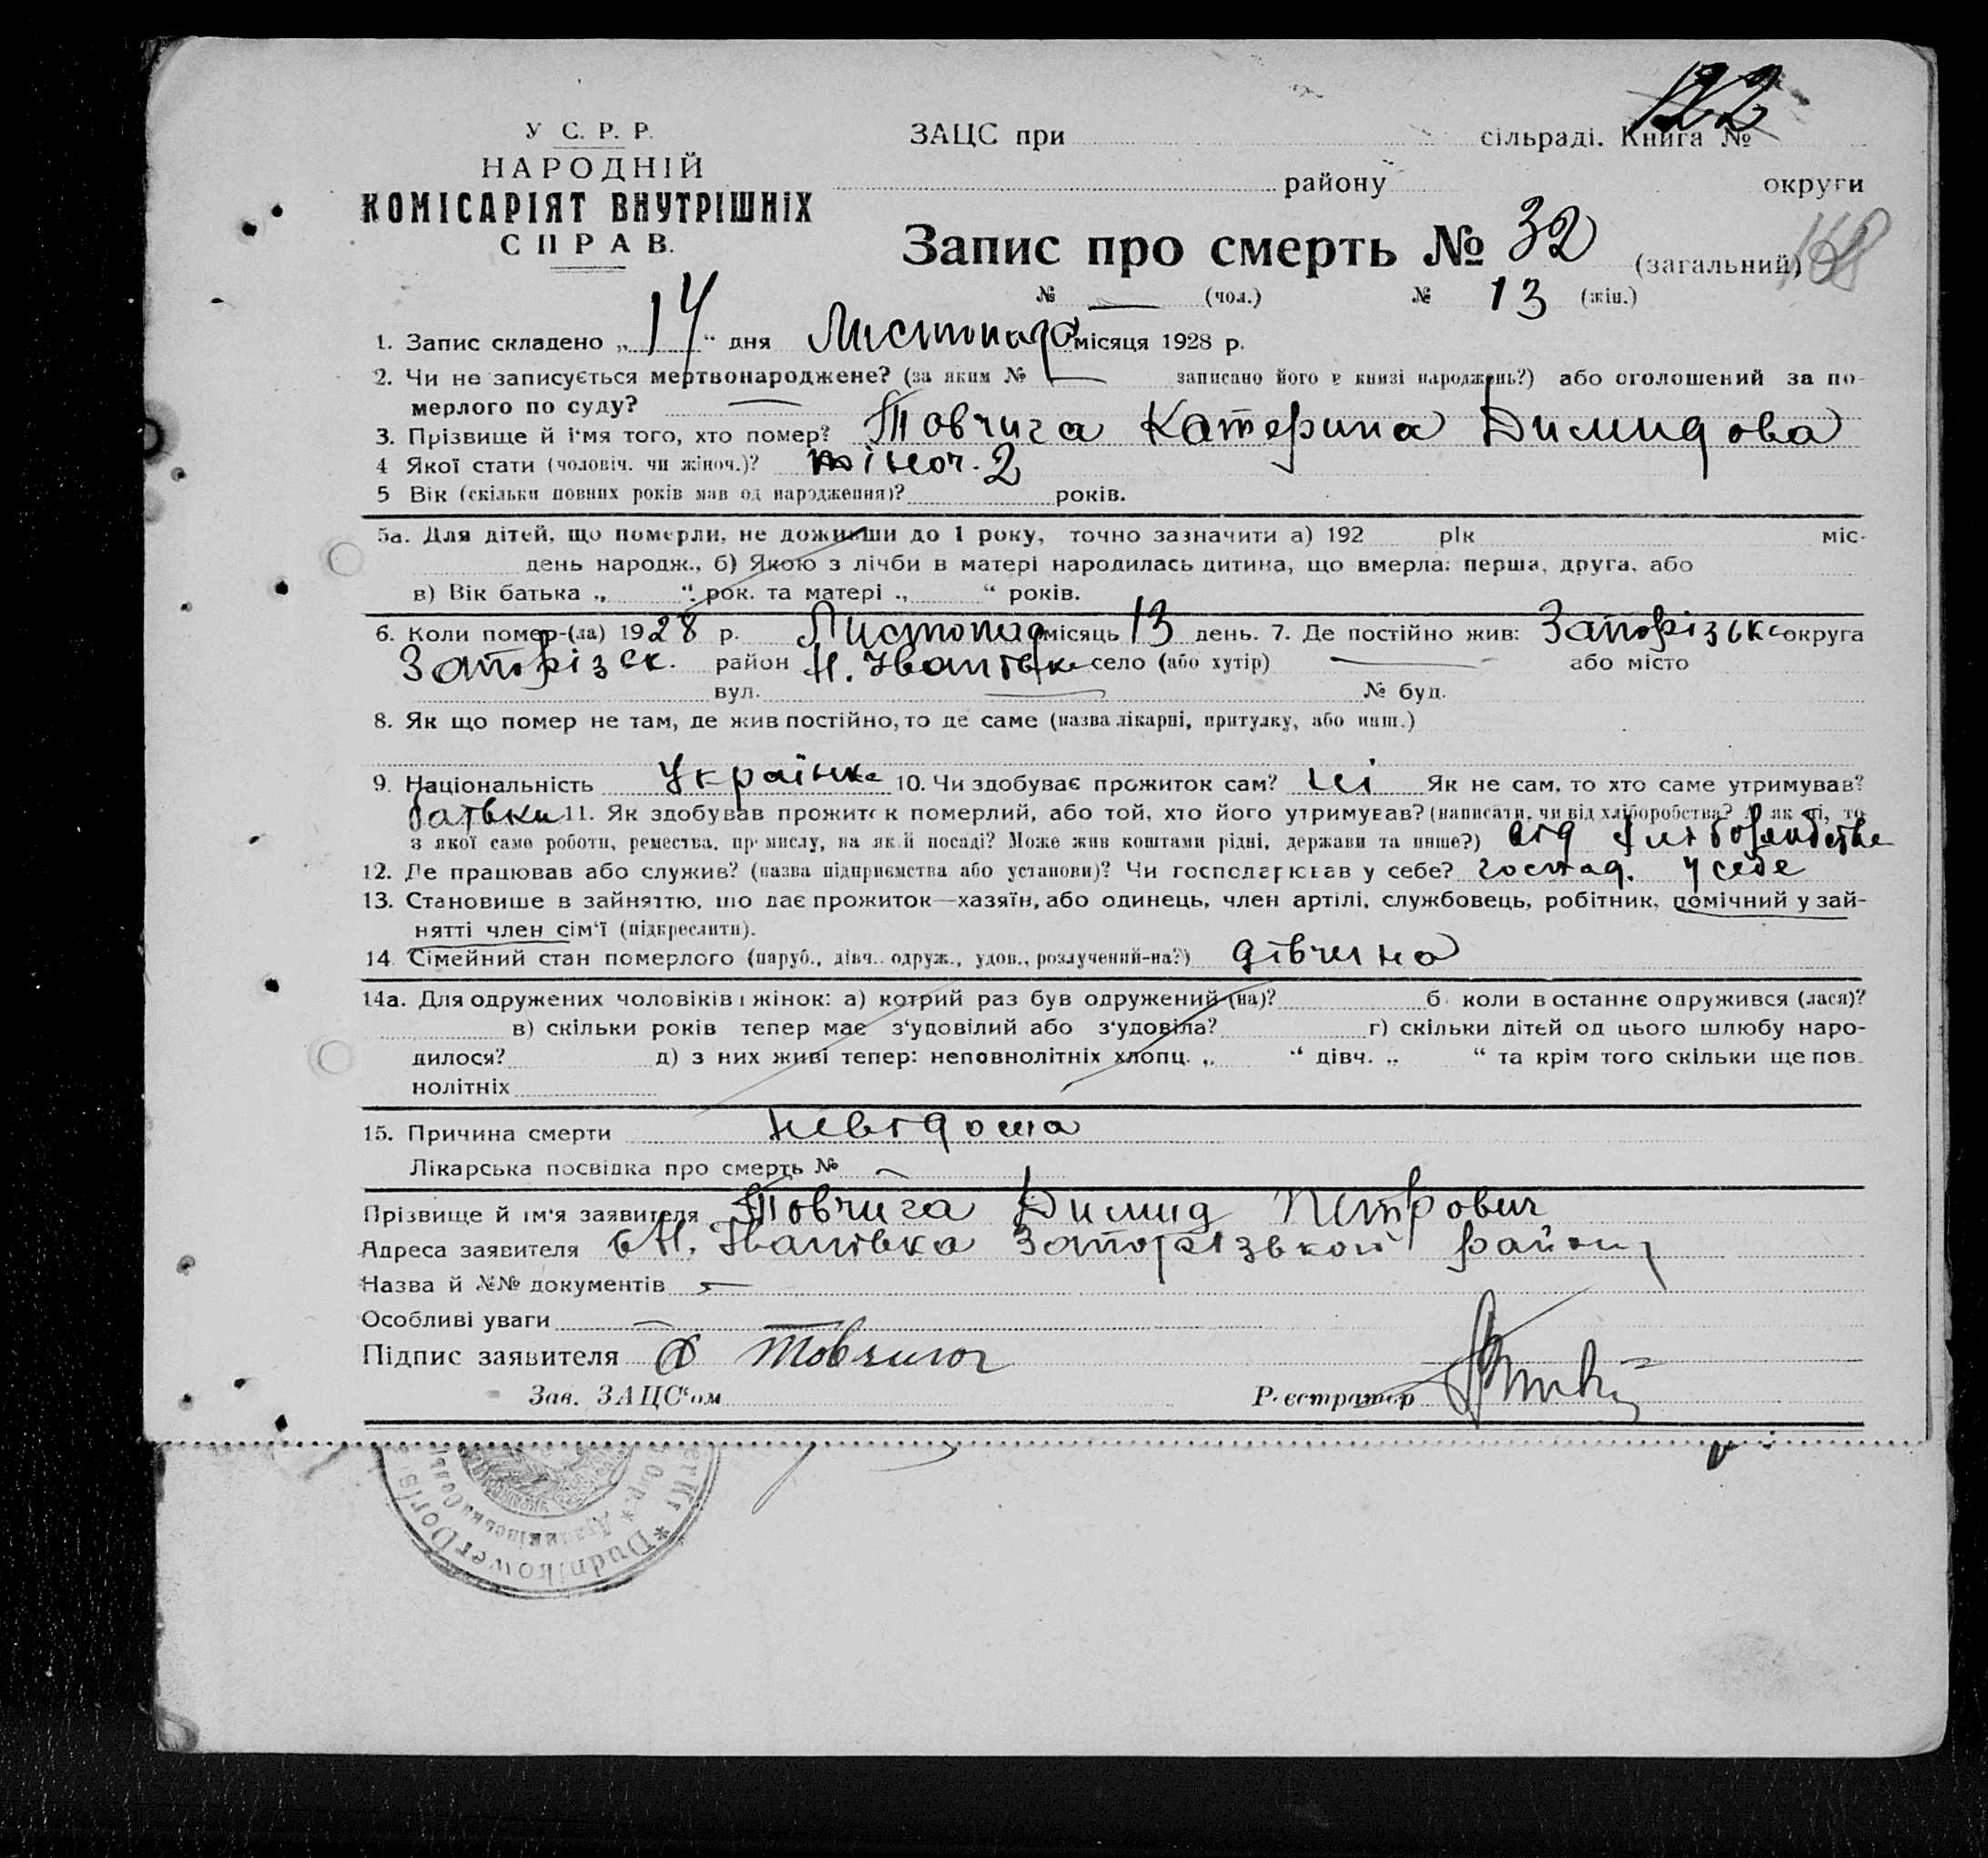 122
У С. Р. Р.
НАРОДНІЙ
КОМІСАРІЯТ ВНУТРІШНІХ
СПРАВ.
ЗАЦС при сільраді. Книга №
району округи
Запис про смерть № 32 (загальний) 168
№ — (чол.) № 13 (жін.)
1. Запис складено „14“ дня Листопада місяця 1928 р.
2. Чи не записується мертвонароджене? (за яким № — записано його в книзі народжень?) або оголошений за по-
мерлого по суду? —
3. Прізвище й і'мя того, хто помер? Товчига Катерина Димидова
4 Якої стати (чоловіч. чи жіноч.)? жіноч. 2
5 Вік (скільки повних років мав од народження)? років.
5а. Для дітей, що померли, не доживши до 1 року, точно зазначити а) 192 рік міс-
день народж., б) Якою з лічби в матері народилась дитина, що вмерла: перша, друга, або
в) Вік батька „ “ рок. та матері „ “ років.
6. Коли помер-(ла) 1928 р. Листопад місяць 13 день. 7. Де постійно жив: Запорізьк округа
Запорізск. район Н. Іванівка село (або хутір) — або місто
вул. — № буд.
8. Як що помер не там, де жив постійно, то де саме (назва лікарні, притулку, або инш.)
9. Національність Українка 10. Чи здобуває прожиток сам? ні Як не сам, то хто саме утримував?
батьки 11. Як здобував прожиток померлий, або той, хто його утримував? (написати, чи від хліборобства? А як ні, то
з якої саме роботи, ремества, промислу, на якій посаді? Може жив коштами рідні, держави та инше?) від хліборобства
12. Де працював або служив? (назва підприємства або установи)? Чи господарював у себе? господ. у себе
13. Становище в зайняттю, що дає прожиток—хазяїн, або одинець, член артілі, службовець, робітник, помічний у зай-
нятті член сім'ї (підкреслити).
14 Сімейний стан померлого (паруб., дівч., одруж., удов., розлучений-на?) дівчина
14а. Для одружених чоловіків і жінок: а) котрий раз був одружений (на)? б) коли востаннє одружився (лася)?
в) скільки років тепер має з'удовілий або з'удовіла? г) скільки дітей од цього шлюбу наро-
дилося? д) з них живі тепер: неповнолітніх хлопц. „ “ дівч. „ “ та крім того скільки ще пов-
нолітніх
15. Причина смерти невідома
Лікарська посвідка про смерть № —
Прізвище й ім'я заявителя Товчига Димид Петрович
Адреса заявителя с Н. Іванівка Запорізької району
Назва й №№ документів —
Особливі уваги —
Підпис заявителя Д Товчига
Зав. ЗАЦС'ом Реєстратор
* Dudnikower Dorfs